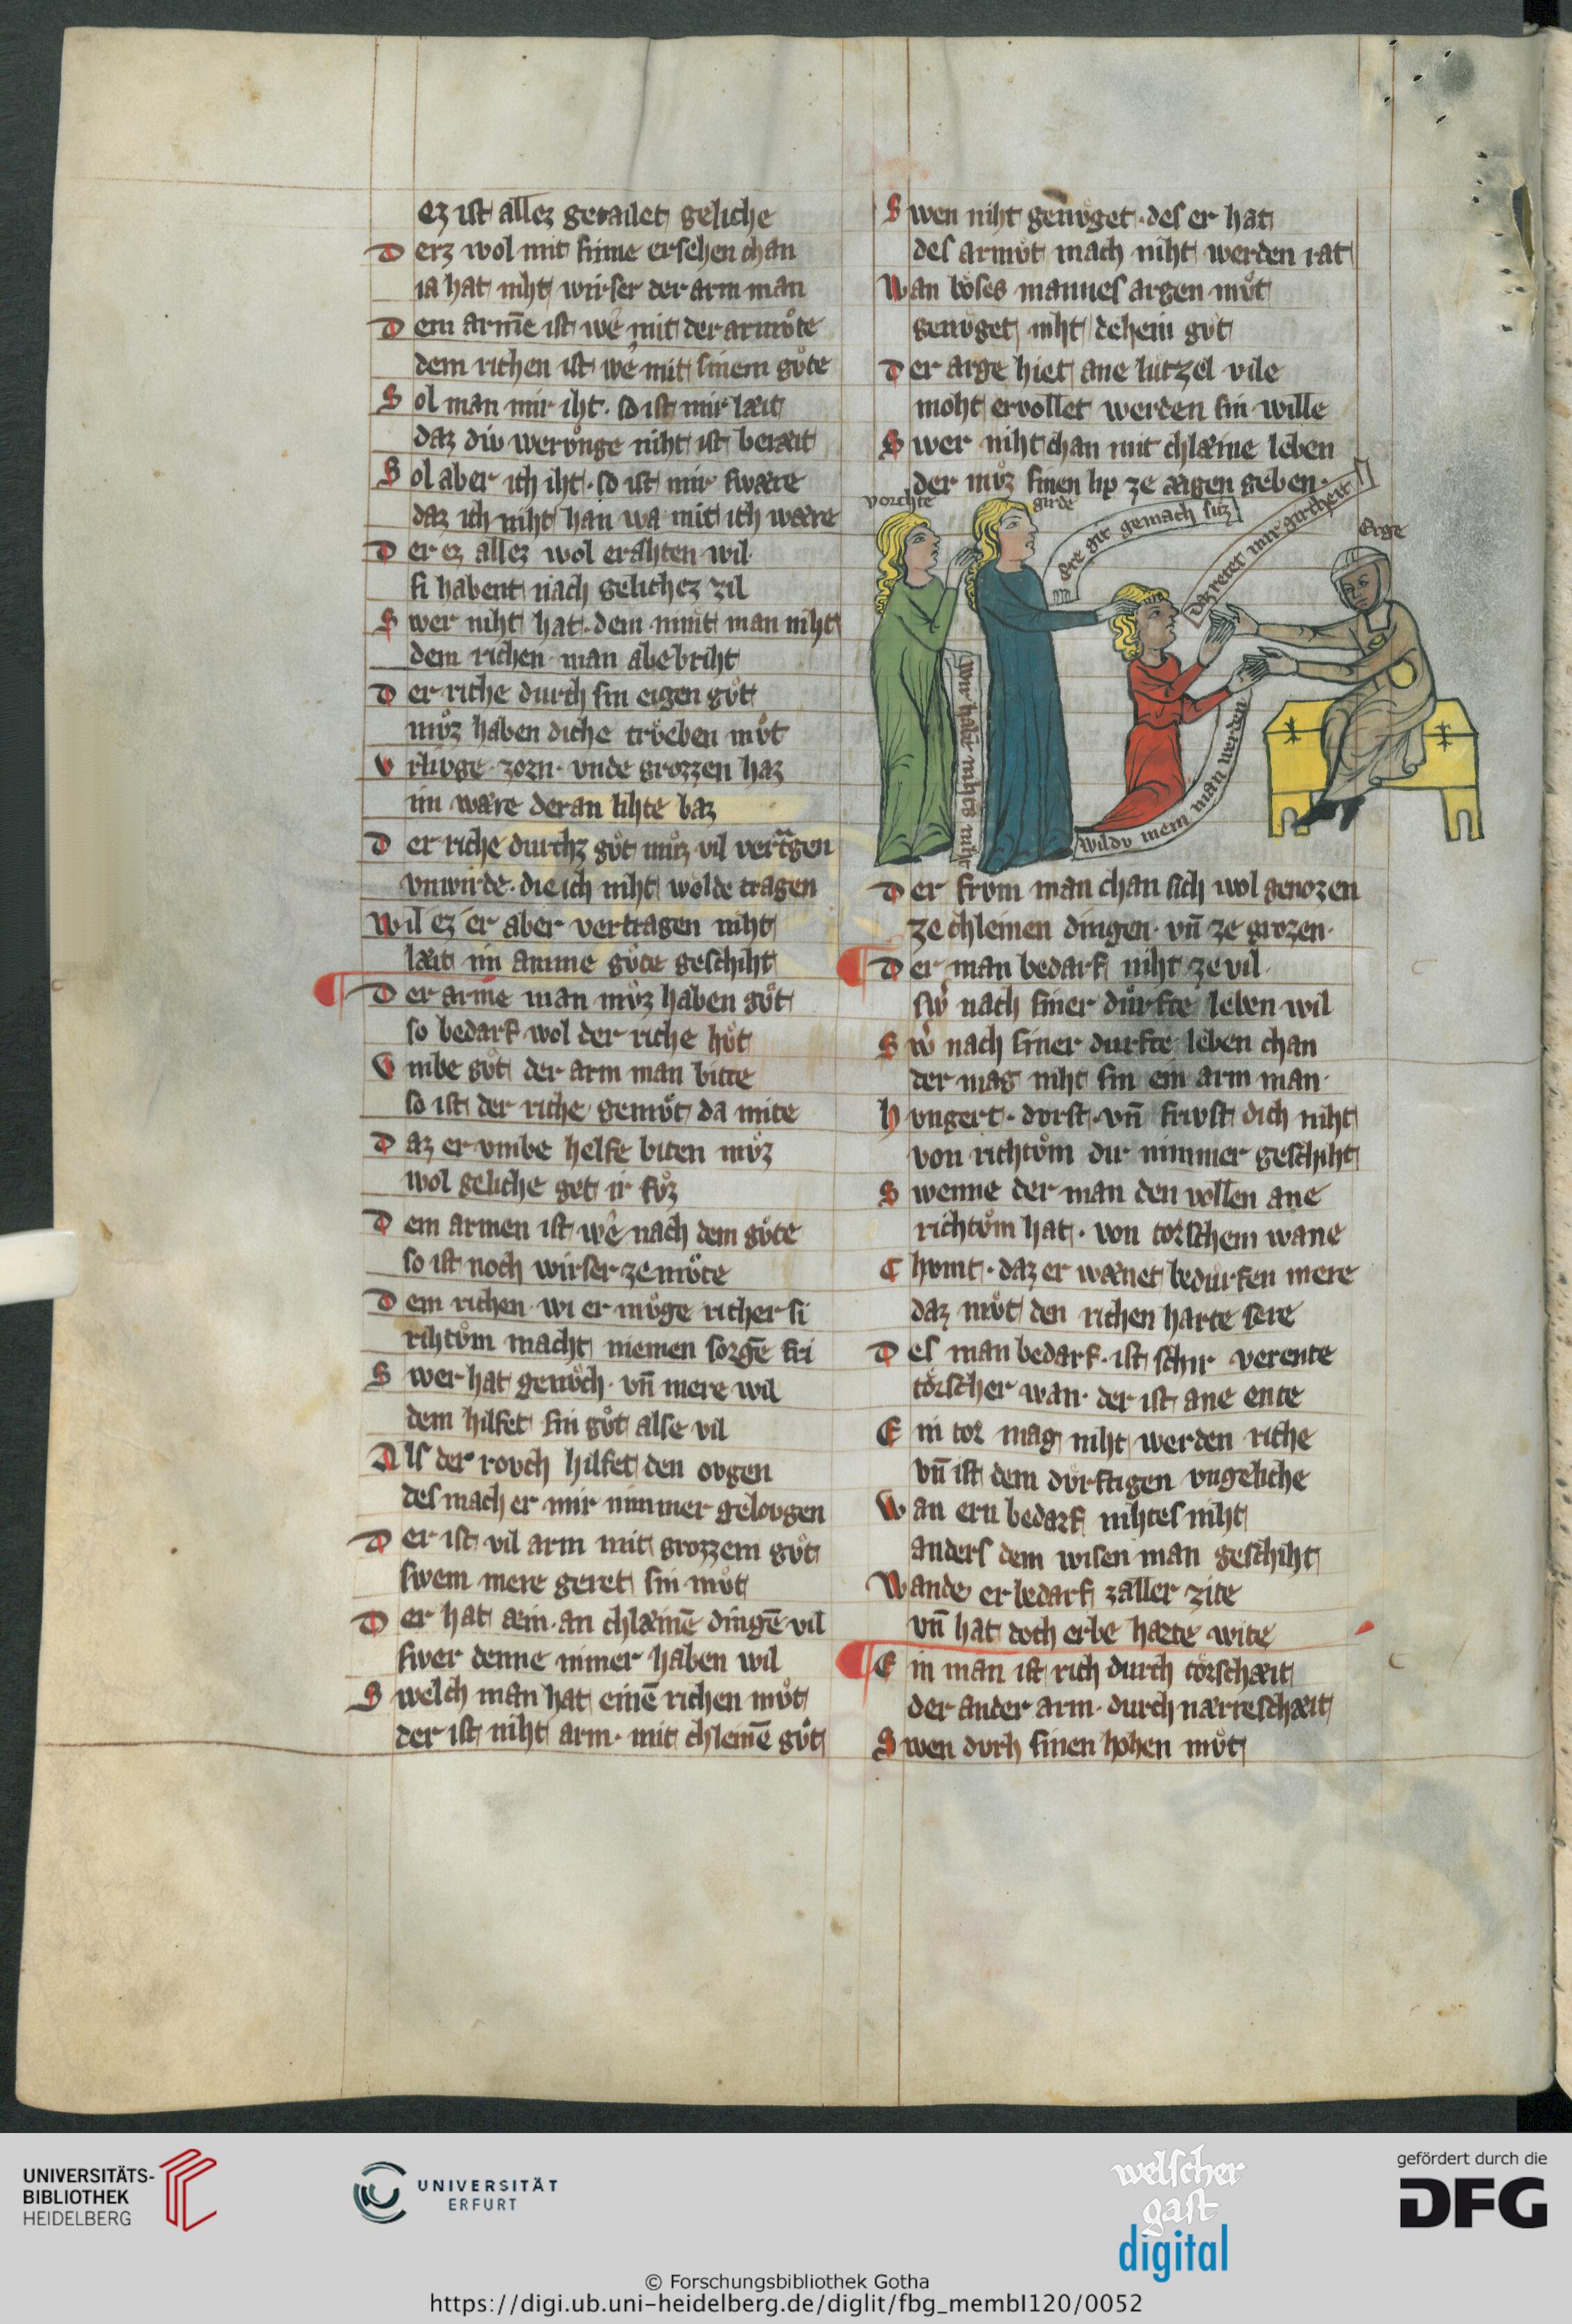 ez ist allez getailet geliche
Derz wol mit sinne ersehen chan
ia hat niht wirser der arm man
Dem arme̅ ist wê mit der armv̊te
dem richen ist wê mit sinem gv̊te
Sol man mir iht · so ist mir læit
daz div wervnge niht ist beræit
Sol aber ich iht · so ist mir swære
daz ich niht han wa mit ich wære
Der ez allez wol erahten wil
si habent nach gelichez zil
Swer niht hat · dem nimt man niht
dem richen man abebriht
Der riche durch sin eigen gv̊t
mv̊z haben diche trv̊eben mv̊t
vrlivge · zorn · vnde grozzen haz
im wære deran lihte baz
Der riche durchz gv̊t mv̊z vil vertragen
vnwirde · die ich niht wolde tragen
Wil ez er aber vertragen niht
læit im anme gv̊te geschiht
Der arme man mv̊z haben gv̊t
so bedarf wol der riche hv̊t
Vmbe gv̊t der arm man bitte
so ist der riche gemv̊t da mite
Daz er vmbe helfe biten mv̊z
wol geliche get ir fv̊z
Dem armen ist wê nach dem gv̊te
so ist noch wirser ze mv̊te
Dem richen wi er mv̊ge richer si
rihtv̊m macht niemen sorge̅ fri
Swer hat genv̊ch · vn̅ mere wil
dem hilfet sin gv̊t alse vil
Als der rovch hilfet den ovgen
des mach er mir nimmer gelovgen
Der ist vil arm mit grozzem gv̊t
swem mere geret sin mv̊t
Der hat æin · an chlæine̅ dinge̅ vil
swer denne nimer haben wil
Swelch man hat eine̅ richen mv̊t
der ist niht arm · mit chleine̅ gv̊t
Swen niht genv̊get · des er hat
des armv̊t mach niht werden rat
Wan bôses mannes argen mv̊t
genv̊get niht dehein gv̊t
Der arge hiet ane lutzel vile
moht ervollet werden sin wille
Swer niht chan mit chlæine leben
der mv̊z sinen lip ze æigen geben ·
vorchte
girde
Erge
Ere gir gemach siz
daz retet mir gircheit
wir habe̅ nihtes niht
wildv mein man werden
Der frvm man chan sich wol genozen
ze chleinen dingen · vn̅ ze grozen ·
Der man bedarf niht ze vil
sw̉ nach siner dv̊rfte leben wil
Sw̉ nach siner durfte leben chan
der mag niht sin ein arm man ·
Hvngert · dvrst · vn̅ frivst dich niht
von richtv̊m dir nimmer geschiht
Swenne der man den vollen ane
richtv̊m hat · von torschem wane
Chvmt · daz er wænet bedurfen mere
daz mv̊t den richen harte sere
Des man bedarf · ist schir verente
tôrscher wan · der ist ane ente
Ein tor mag niht werden riche
vn̅ ist dem dvrftigen vngeliche
Wan ern bedarf nihtes niht
anders dem wisen man geschiht
Wande er bedarf zaller zite
vn̅ hat doch erbe harte wite
Ein man ist rich durch tôrschæit
der ander arm · durch nærreschæit
Swen dvrh sinen hohen mv̊t
UNIVERSITÄTS-
BIBLIOTHEK
HEIDELBERG
UNIVERSITÄT
ERFURT
welscher
gast
digital
gefördert durch die
DFG
© Forschungsbibliothek Gotha
https://digi.ub.uni-heidelberg.de/diglit/fbg_membI120/0052